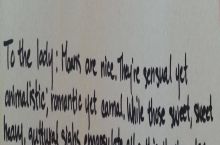 To the body: Moans are nice. They're sensual yet
animalistic, romantic yet carnal. While those sweet, sweet
heavy, guttural sighs encapsulate